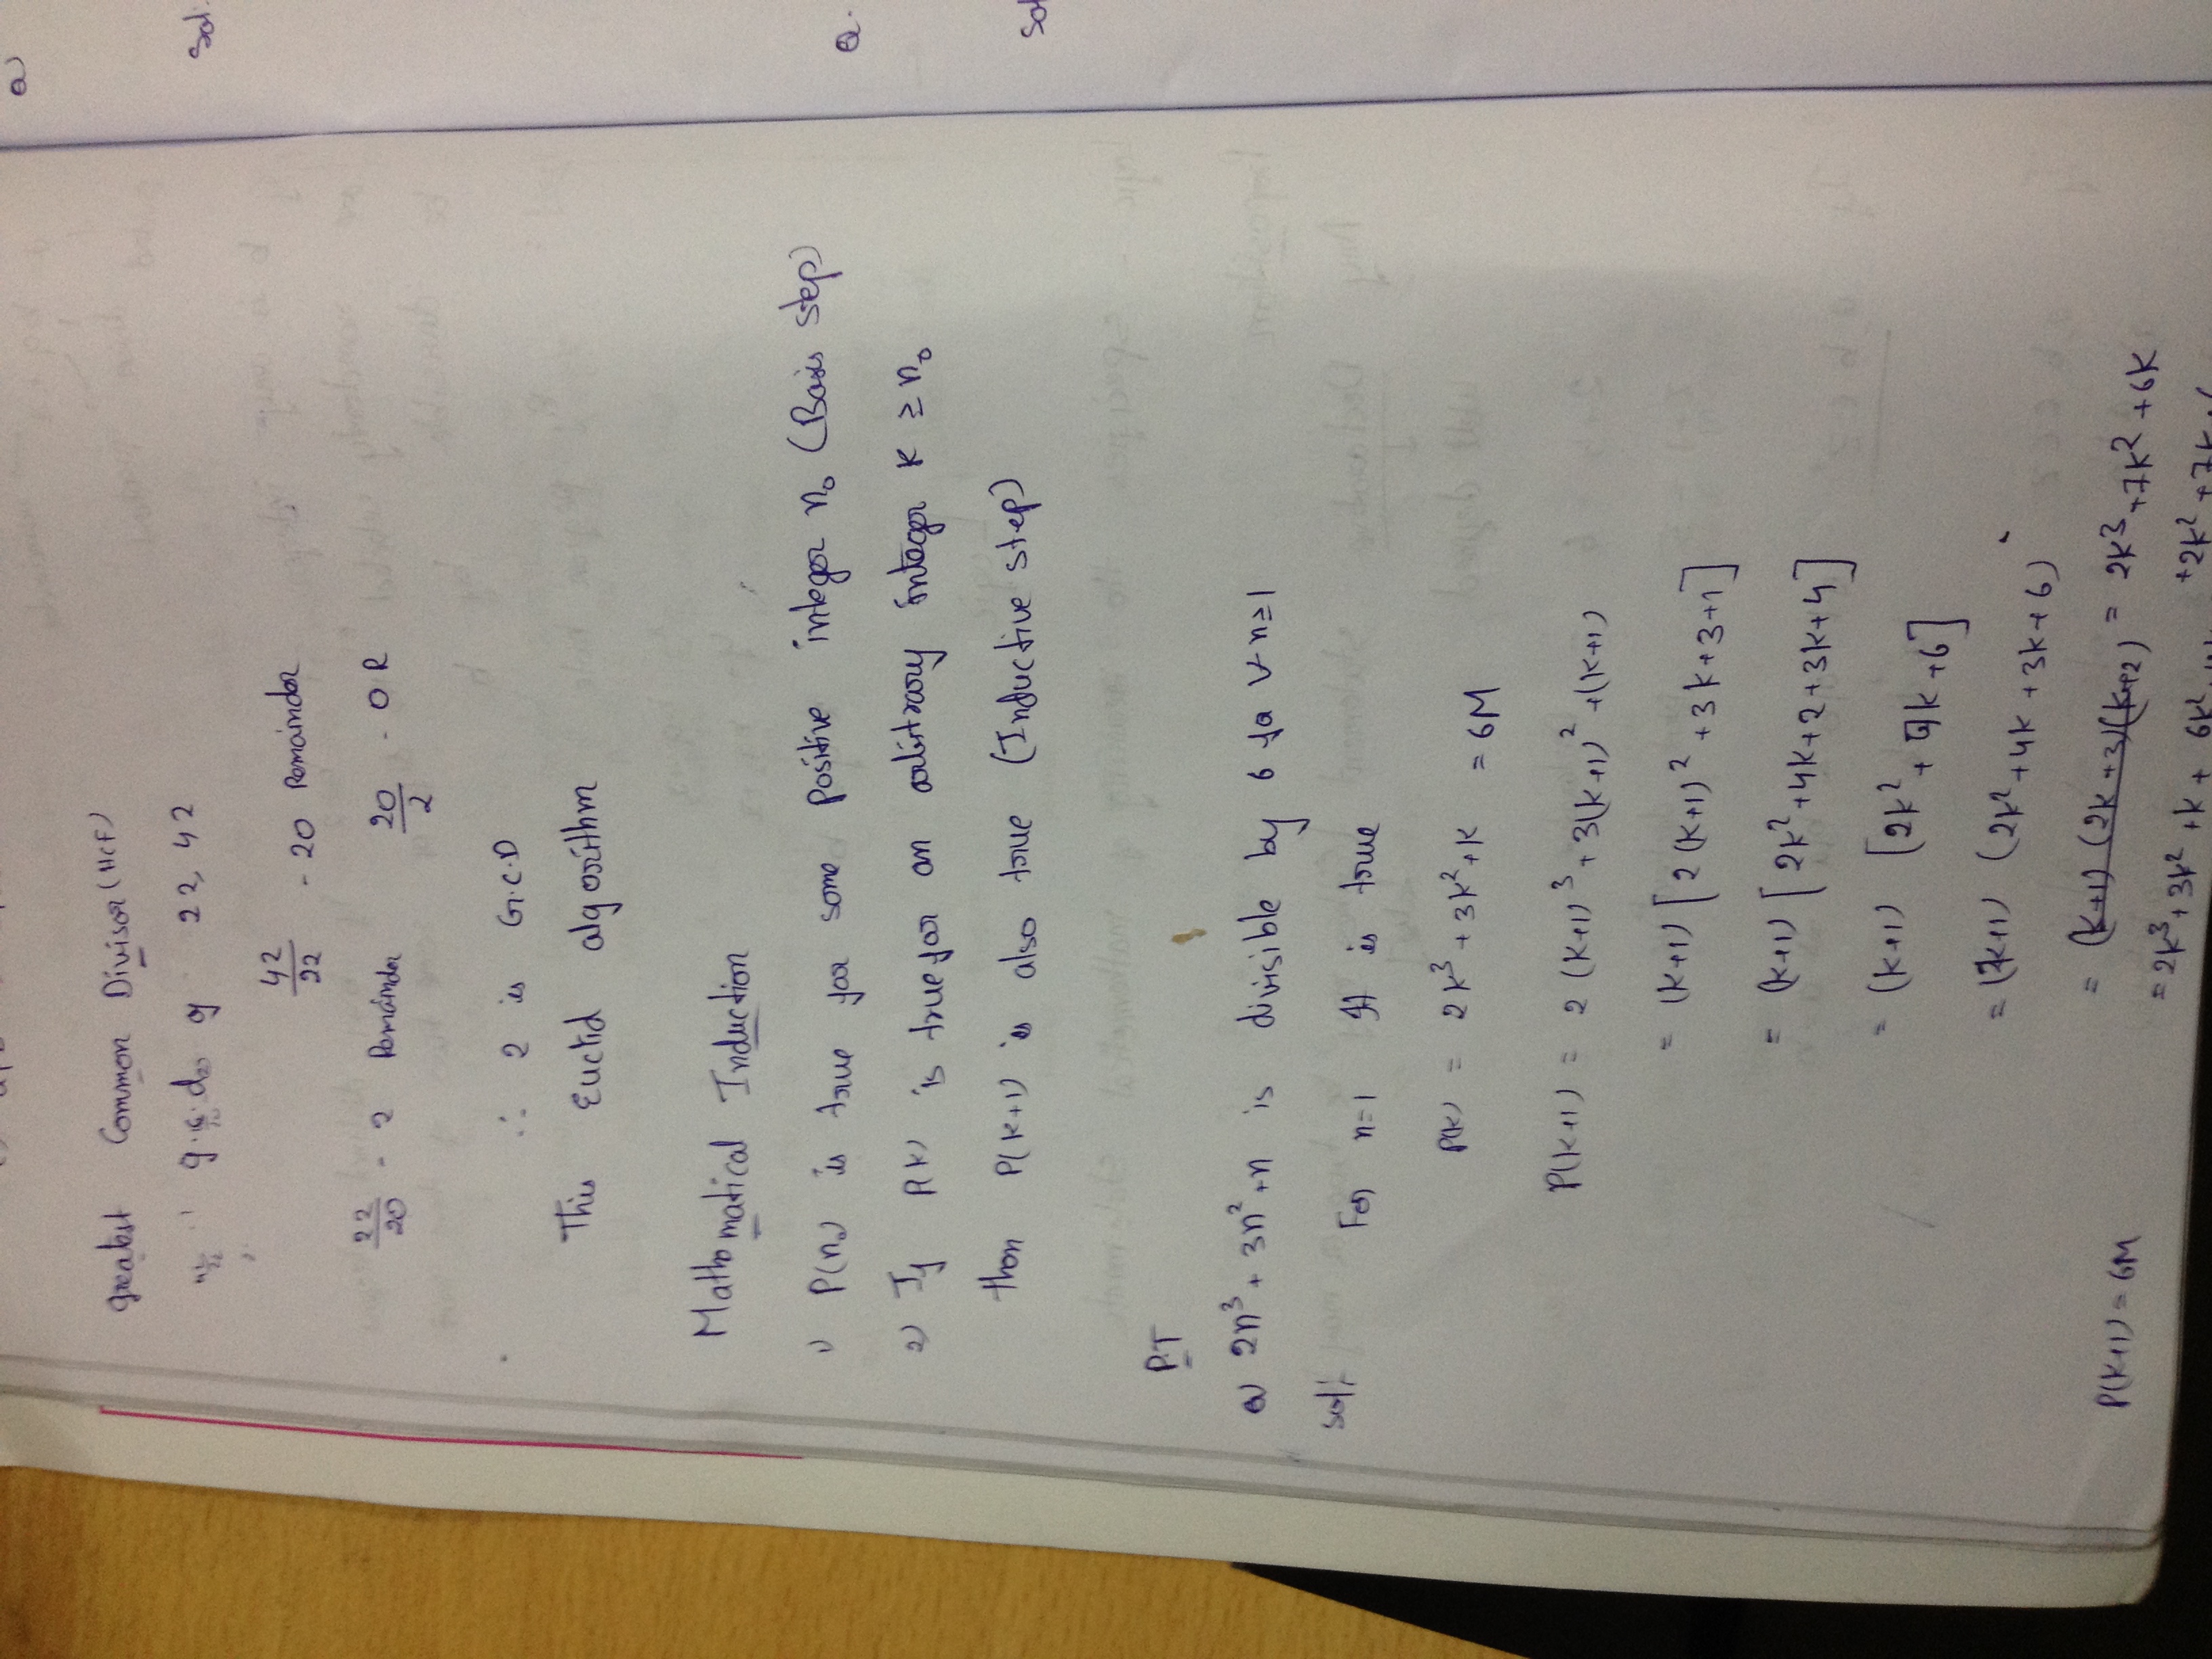 Greatest Common Divisor (HCF)
g.c.d of 22, 42
42/22 - 20 Remainder
22/20 - 2 Remainder 20/2 - 0 R
∴ 2 is G.C.D
This Euclid algorithm
Mathematical Induction
1) P(n₀) is true for some positive integer n₀ (Basis step)
2) If P(k) is true for an arbitrary integer k ≥ n₀
then P(k+1) is also true (Inductive step)
P.T
a) 2n³ + 3n² + n is divisible by 6 for ∀ n≥1
Sol:- For n=1 it is true
P(k) = 2k³ + 3k² + k = 6M
P(k+1) = 2(k+1)³ + 3(k+1)² + (k+1)
= (k+1) [2(k+1)² + 3k + 3 + 1]
= (k+1) [2k² + 4k + 2 + 3k + 4]
= (k+1) [2k² + 7k + 6]
= (k+1) (2k² + 4k + 3k + 6)
= (k+1) (2k+3)(k+2) = 2k³ + 7k² + 6k
P(k+1) = 6M = 2k³ + 3k² + k + 6k² + 2k² + 7k
a)
Sol:
Q.
Sol